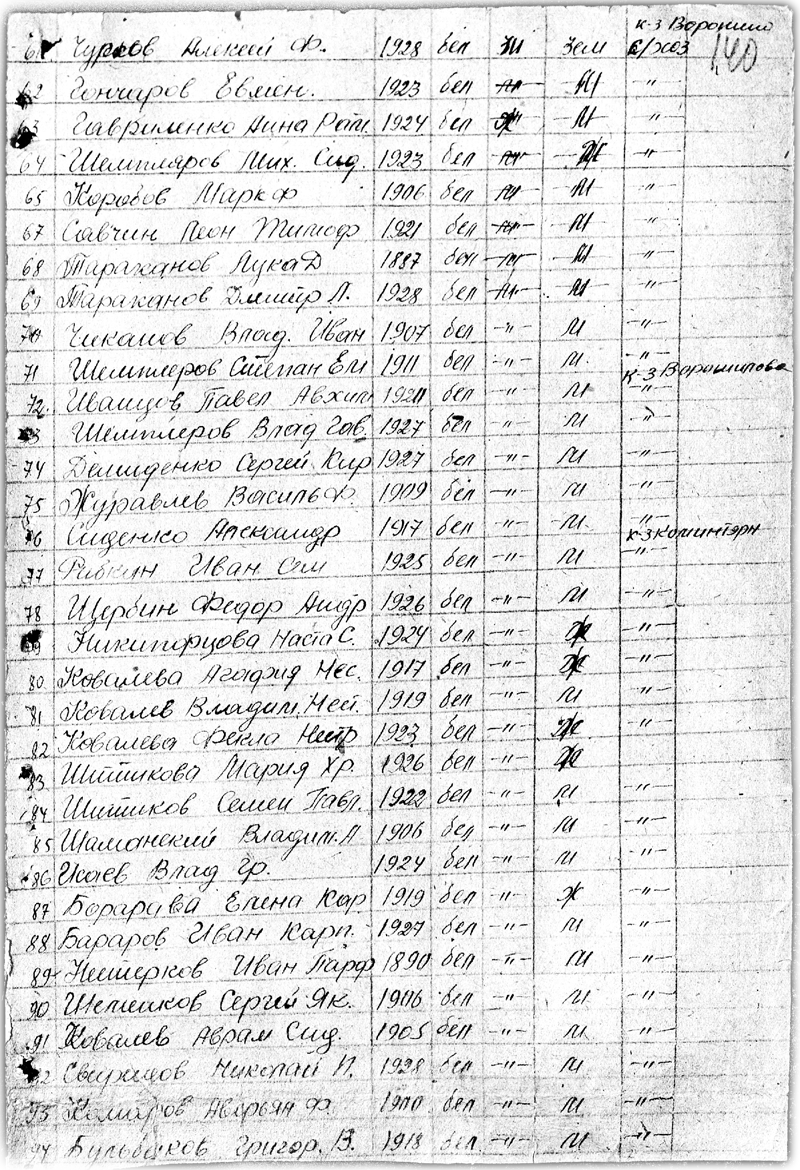 к-з Ворошило
61 Чурков Алексей Ф. 1928 бел Зем с/хоз 140
62 Гончаров Евмен. 1923 бел -"- М -"-
63 Гавриленко Анна Рам. 1924 бел Ж М -"-
64 Шемпляров Мих. Сид. 1923 бел -"- Ж -"-
65 Коробов Марк Ф 1906 бел -"- М -"-
67 Савчин Леон Тимоф 1921 бел -"- М -"-
68 Тараканов Лука Д 1887 бел -"- М -"-
69 Тараканов Дмитр Л. 1928 бел -"- М -"-
70 Чиканов Влад. Иван 1907 бел -"- м -"-
71 Шемплеров Степан Ем 1911 бел -"- м. -"-
к-з Ворошилова
72. Иванцов Павел 1921 бел -"- м -"-
73 Шемплеров Влад Гав 1927 бел -"- м -"-
74 Демиденко Сергей Кир 1927 бел -"- м -"-
75 Журавлев Василь Ф. 1909 бел -"- м -"-
76 Сиденко Александр 1917 бел -"- м -"-
к-з коминтэрн
77 Рибкин Иван Сем 1925 бел -"- м -"-
78 Щербин Федор Андр 1926 бел -"- м -"-
79 Никипорцова Наста С. 1924 бел -"- ж -"-
80 Ковалева Агафия Нес. 1917 бел -"- ж -"-
81 Ковалев Владим. Нест. 1919 бел -"- м -"-
82 Ковалева Фекла 1923 бел -"- ж -"-
83 Шитикова Мария Хр. 1926 бел -"- ж
84 Шитиков Семен Павл. 1922 бел -"- м -"-
85 Шаманский Владим. Л 1906 бел -"- м -"-
86 Исаев Влад Гр. 1924 бел -"- м -"-
87 Елена Кар 1919 бел -"- ж -"-
88 Бараров Иван Карп. 1927 бел -"- м -"-
89 Нестерков Иван Парф 1890 бел -"- м -"-
90 Шеменков Сергей Як. 1906 бел -"- м -"-
91 Ковалев Аврам Сид. 1905 бел -"- м -"-
92 Свиридов Николай И. 1928 бел -"- м -"-
93 Комаров Аверьян Ф. 1900 бел -"- м -"-
94 Бульбаков Григор. В. 1918 бел -"- м -"-